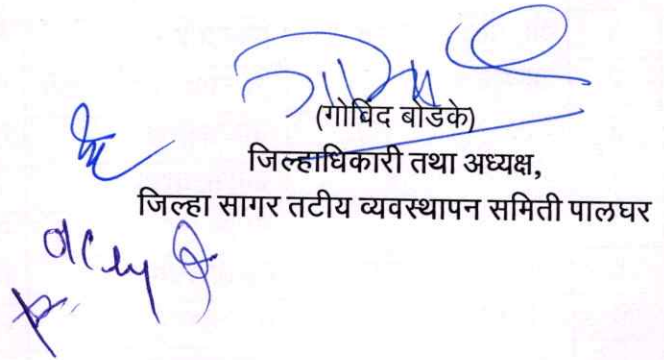 (गोविंद बोडके)
जिल्हाधिकारी तथा अध्यक्ष,
जिल्हा सागर तटीय व्यवस्थापन समिती पालघर